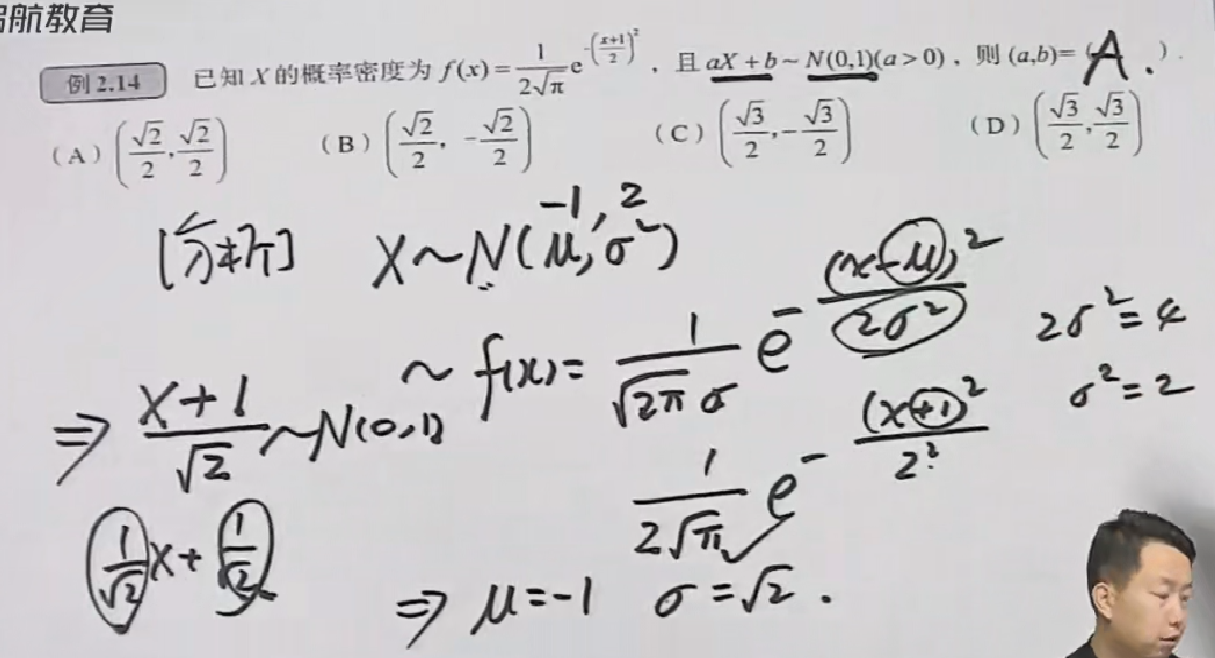 启航教育
例2.14 已知 X 的概率密度为 f(x)=\frac{1}{2\sqrt{\pi}}e^{-\left(\frac{x+1}{2}\right)^2}，且 aX+b~N(0,1)(a>0)，则 (a,b)=( A . ).
(A) \left(\frac{\sqrt{2}}{2},\frac{\sqrt{2}}{2}\right) (B) \left(\frac{\sqrt{2}}{2},-\frac{\sqrt{2}}{2}\right) (C) \left(\frac{\sqrt{3}}{2},-\frac{\sqrt{3}}{2}\right) (D) \left(\frac{\sqrt{3}}{2},\frac{\sqrt{3}}{2}\right)
-1, 2
[分析] X~N(μ,σ^2)
~f(x)=\frac{1}{\sqrt{2π}σ}e^{-\frac{(x-μ)^2}{2σ^2}} 2σ^2=4
σ^2=2
⇒\frac{X+1}{\sqrt{2}}~N(0,1)
\frac{1}{2\sqrt{π}}e^{-\frac{(x+1)^2}{2^2}}
\frac{1}{\sqrt{2}}X+\frac{1}{\sqrt{2}}
⇒ μ=-1 σ=\sqrt{2}.